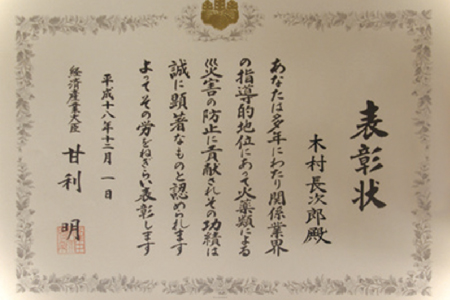 表彰状
木村長次郎殿
あなたは多年にわたり関係業界
の指導的地位にあって火薬類による
災害の防止に貢献されその功績は
誠に顕著なものと認められます
よってその労をねぎらい表彰します
平成十八年十二月一日
経済産業大臣 甘利 明